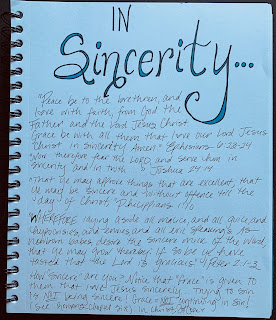 IN
Sincerity...
"Peace be to the brethren, and
love with faith, from God the
Father and the Lord Jesus Christ
Grace be with all them that love our Lord Jesus
Christ in sincerity. Amen." Ephesians 6:23-24
"Now therefore fear the LORD, and serve him in
sincerity and in truth Joshua 24:14
"That ye may approve things that are excellent; that
ye might be sincere and without offence till the
day of Christ." Philippians 1:10
WHEREFORE laying aside all malice, and all guile, and
hypocrisies, and envies, and all evil speakings, As
newborn babes, desire the sincere milk of the word,
that ye may grow thereby: If so be ye have
tasted that the Lord is gracious." 1 Peter 2:1-3
How "sincere" are you? Note that "Grace" is given to
them that love Jesus sincerely. Trying to sin
is NOT being sincere! Grace = NOT continuing in sin!
(see Romans chapter six) In Christ,